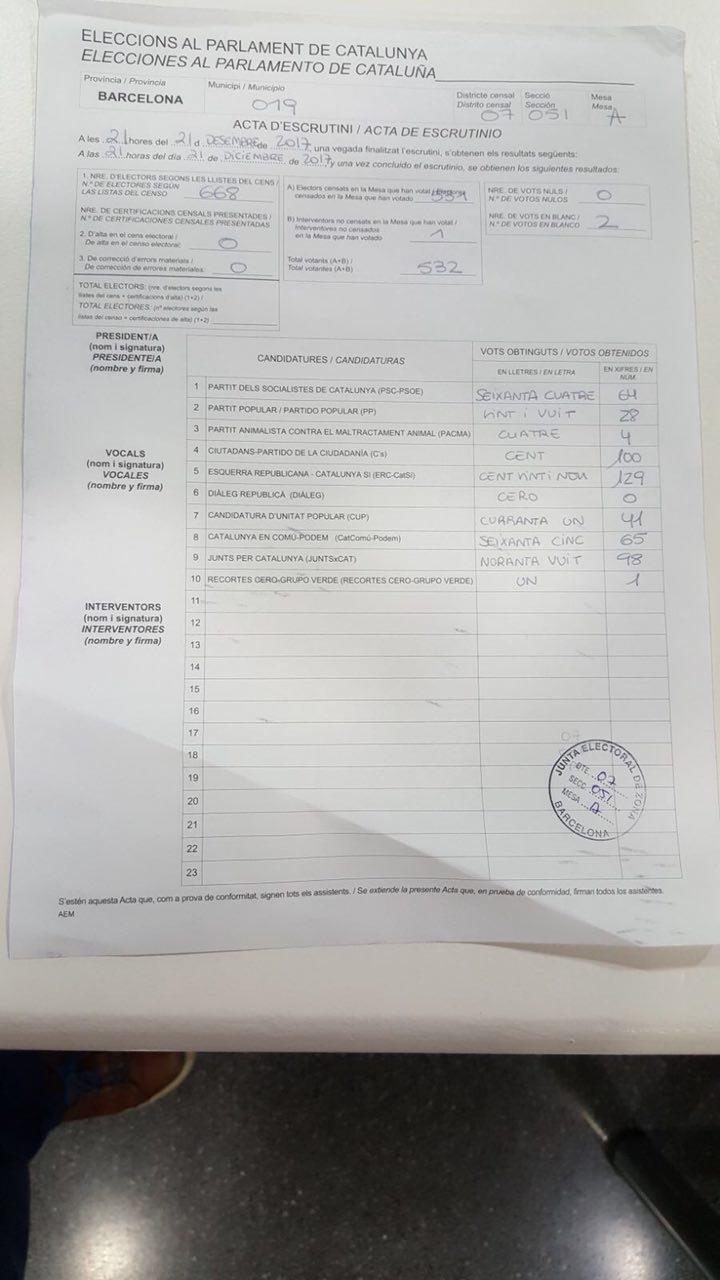 ELECCIONS AL PARLAMENT DE CATALUNYA
ELECCIONES AL PARLAMENTO DE CATALUÑA
Provincia / Provincia
BARCELONA
Municipi / Municipio
019
Districte censal
Distrito censal
07
Secció
Sección
051
Mesa
Mesa
A
ACTA D'ESCRUTINI / ACTA DE ESCRUTINIO
A les 21 hores del 21 d DESEMBRE de 2017, una vegada finalitzat l'escrutini, s'obtenen els resultats següents:
A las 21 horas del día 21 de DICIEMBRE de 2017 y una vez concluido el escrutinio, se obtienen los siguientes resultados:
1. NRE. D'ELECTORS SEGONS LES LLISTES DEL CENS /
N.º DE ELECTORES SEGÚN
LAS LISTAS DEL CENSO
668
NRE. DE CERTIFICACIONS CENSALS PRESENTADES /
N.º DE CERTIFICACIONES CENSALES PRESENTADAS
2. D'alta en el cens electoral /
De alta en el censo electoral:
0
3. De correcció d'errors materials /
De corrección de errores materiales:
0
TOTAL ELECTORS: (nre. d'electors segons les
llistes del cens + certificacions d'alta) (1+2) /
TOTAL ELECTORES: (nº electores según las
listas del censo + certificaciones de alta) (1+2)
A) Electors censats en la Mesa que han votat /
censados en la Mesa que han votado
531
B) Interventors no censats en la Mesa que han votat /
Interventores no censados
en la Mesa que han votado
1
Total votants (A+B) /
Total votantes (A+B)
532
NRE. DE VOTS NULS /
N.º DE VOTOS NULOS
0
NRE. DE VOTS EN BLANC /
N.º DE VOTOS EN BLANCO
2
PRESIDENT/A
(nom i signatura)
PRESIDENTE/A
(nombre y firma)
VOCALS
(nom i signatura)
VOCALES
(nombre y firma)
INTERVENTORS
(nom i signatura)
INTERVENTORES
(nombre y firma)
CANDIDATURES / CANDIDATURAS
VOTS OBTINGUTS / VOTOS OBTENIDOS
EN LLETRES / EN LETRA
EN XIFRES / EN NÚM.
1 PARTIT DELS SOCIALISTES DE CATALUNYA (PSC-PSOE) SEIXANTA CUATRE 64
2 PARTIT POPULAR / PARTIDO POPULAR (PP) VINT i VUIT 28
3 PARTIT ANIMALISTA CONTRA EL MALTRACTAMENT ANIMAL (PACMA) CUATRE 4
4 CIUTADANS-PARTIDO DE LA CIUDADANÍA (C's) CENT 100
5 ESQUERRA REPUBLICANA - CATALUNYA SÍ (ERC-CatSí) CENT VINTI NOU 129
6 DIÀLEG REPUBLICÀ (DIÀLEG) CERO 0
7 CANDIDATURA D'UNITAT POPULAR (CUP) CURRANTA UN 41
8 CATALUNYA EN COMÚ-PODEM (CatComú-Podem) SEIXANTA CINC 65
9 JUNTS PER CATALUNYA (JUNTSxCAT) NORANTA VUIT 98
10 RECORTES CERO-GRUPO VERDE (RECORTES CERO-GRUPO VERDE) UN 1
11
12
13
14
15
16
17
18
19
20
21
22
23
07
JUNTA ELECTORAL DE ZONA
DTE. 07
SECC. 051
MESA A
BARCELONA
S'estén aquesta Acta que, com a prova de conformitat, signen tots els assistents. / Se extiende la presente Acta que, en prueba de conformidad, firman todos los asistentes.
AEM